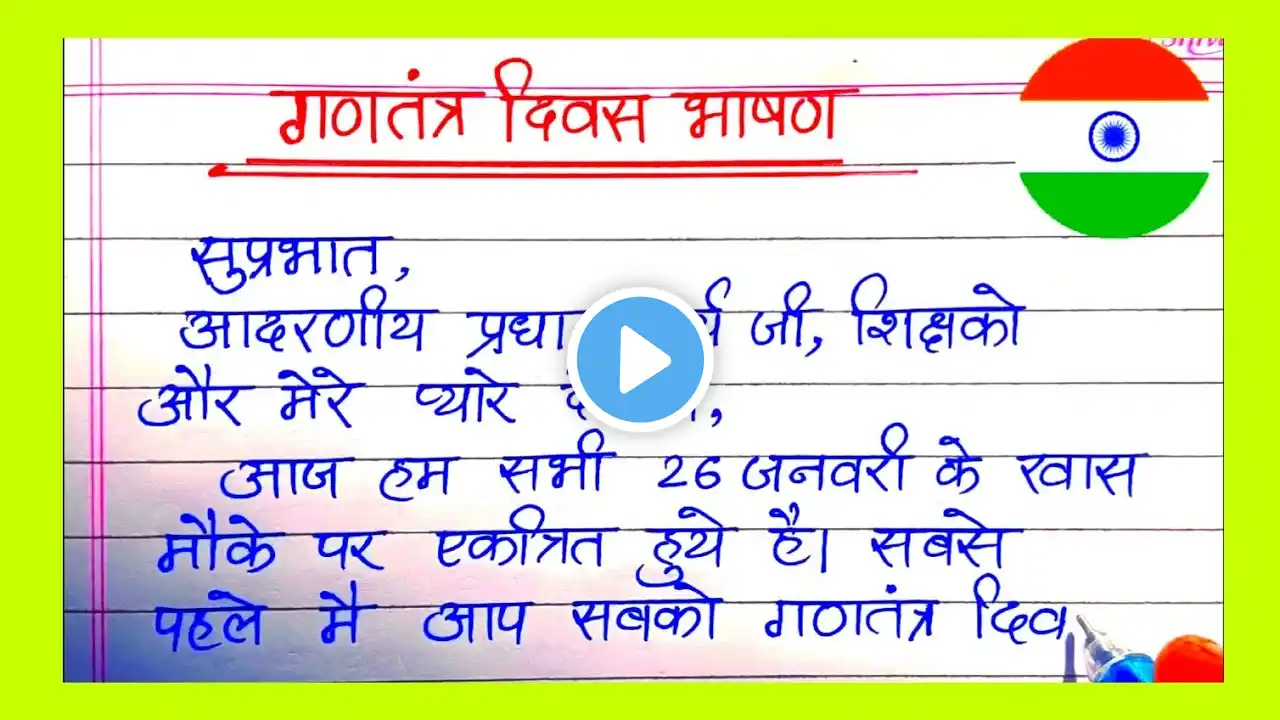 गणतंत्र दिवस भाषण
सुप्रभात,
आदरणीय जी, शिक्षको
और मेरे प्यारे
आज हम सभी 26 जनवरी के खास
मौके पर एकत्रित हुये है। सबसे
पहले मै आप सबको गणतंत्र दिव